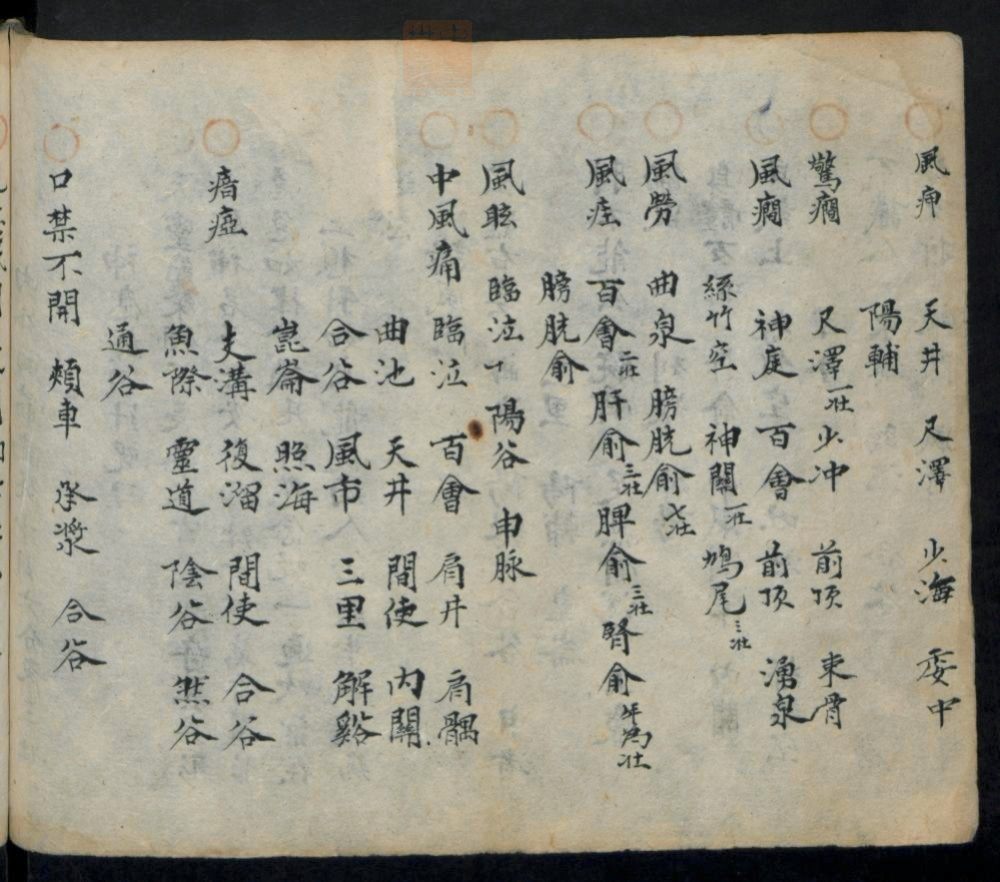 風痹 天井 尺澤 少海 委中
陽輔
驚癇 尺澤一壯 少冲 前頂 束骨
風癇 神庭 百會 前頂 湧泉
絲竹空 神闕一壯 鳩尾三壯
風勞 曲泉 膀胱俞七壯
風疰 百會二壯 肝俞三壯 脾俞三壯 腎俞年為壯
膀胱俞
風眩 臨泣 陽谷 申脉
中風痛 臨泣 百會 肩井 肩髃
曲池 天井 間使 內關
合谷 風市 三里 解谿
崑崙 照海
瘖瘂 支溝 復溜 間使 合谷
魚際 靈道 陰谷 然谷
通谷
口禁不開 頰車 承漿 合谷